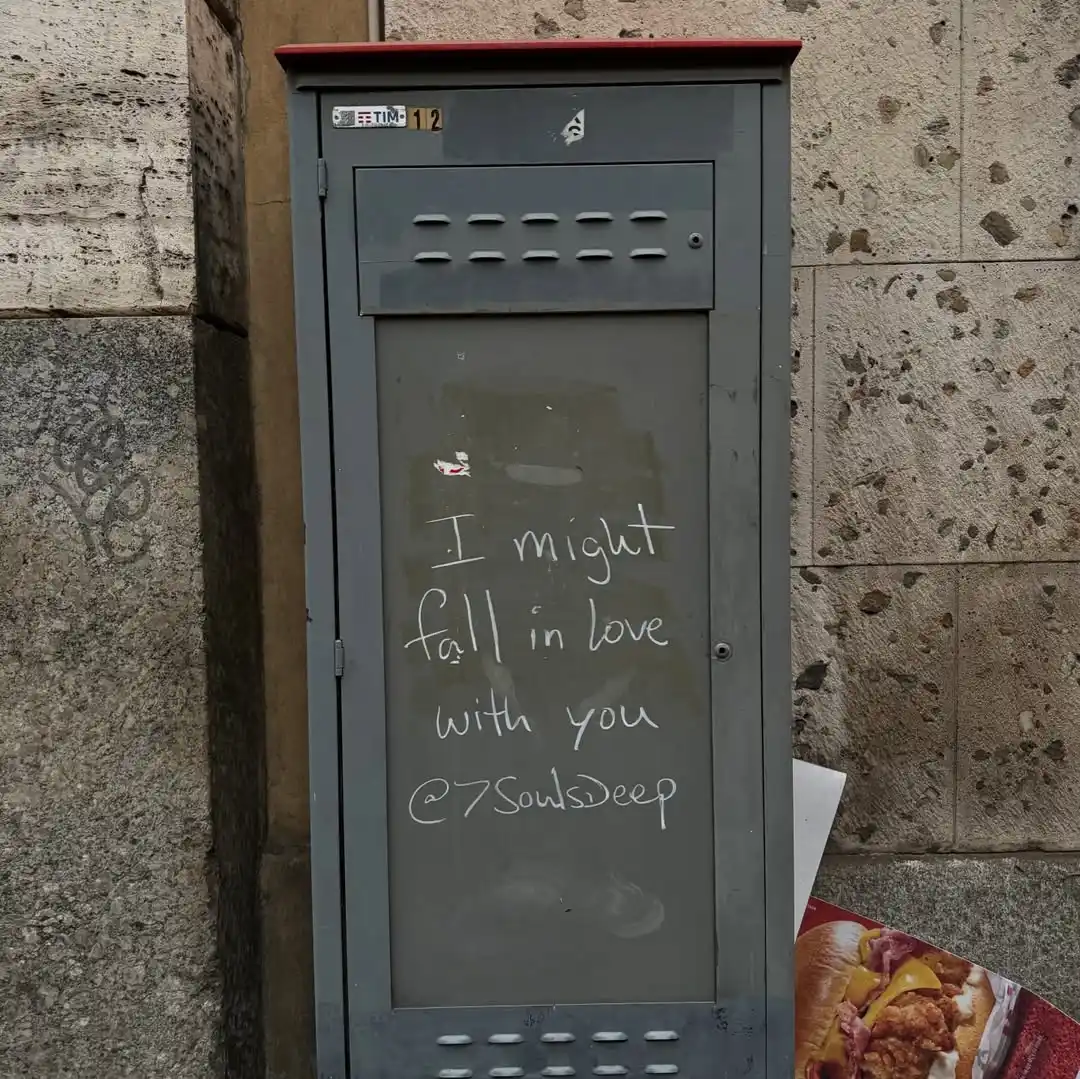 TIM 12
I might
fall in love
with you
@7SoulsDeep